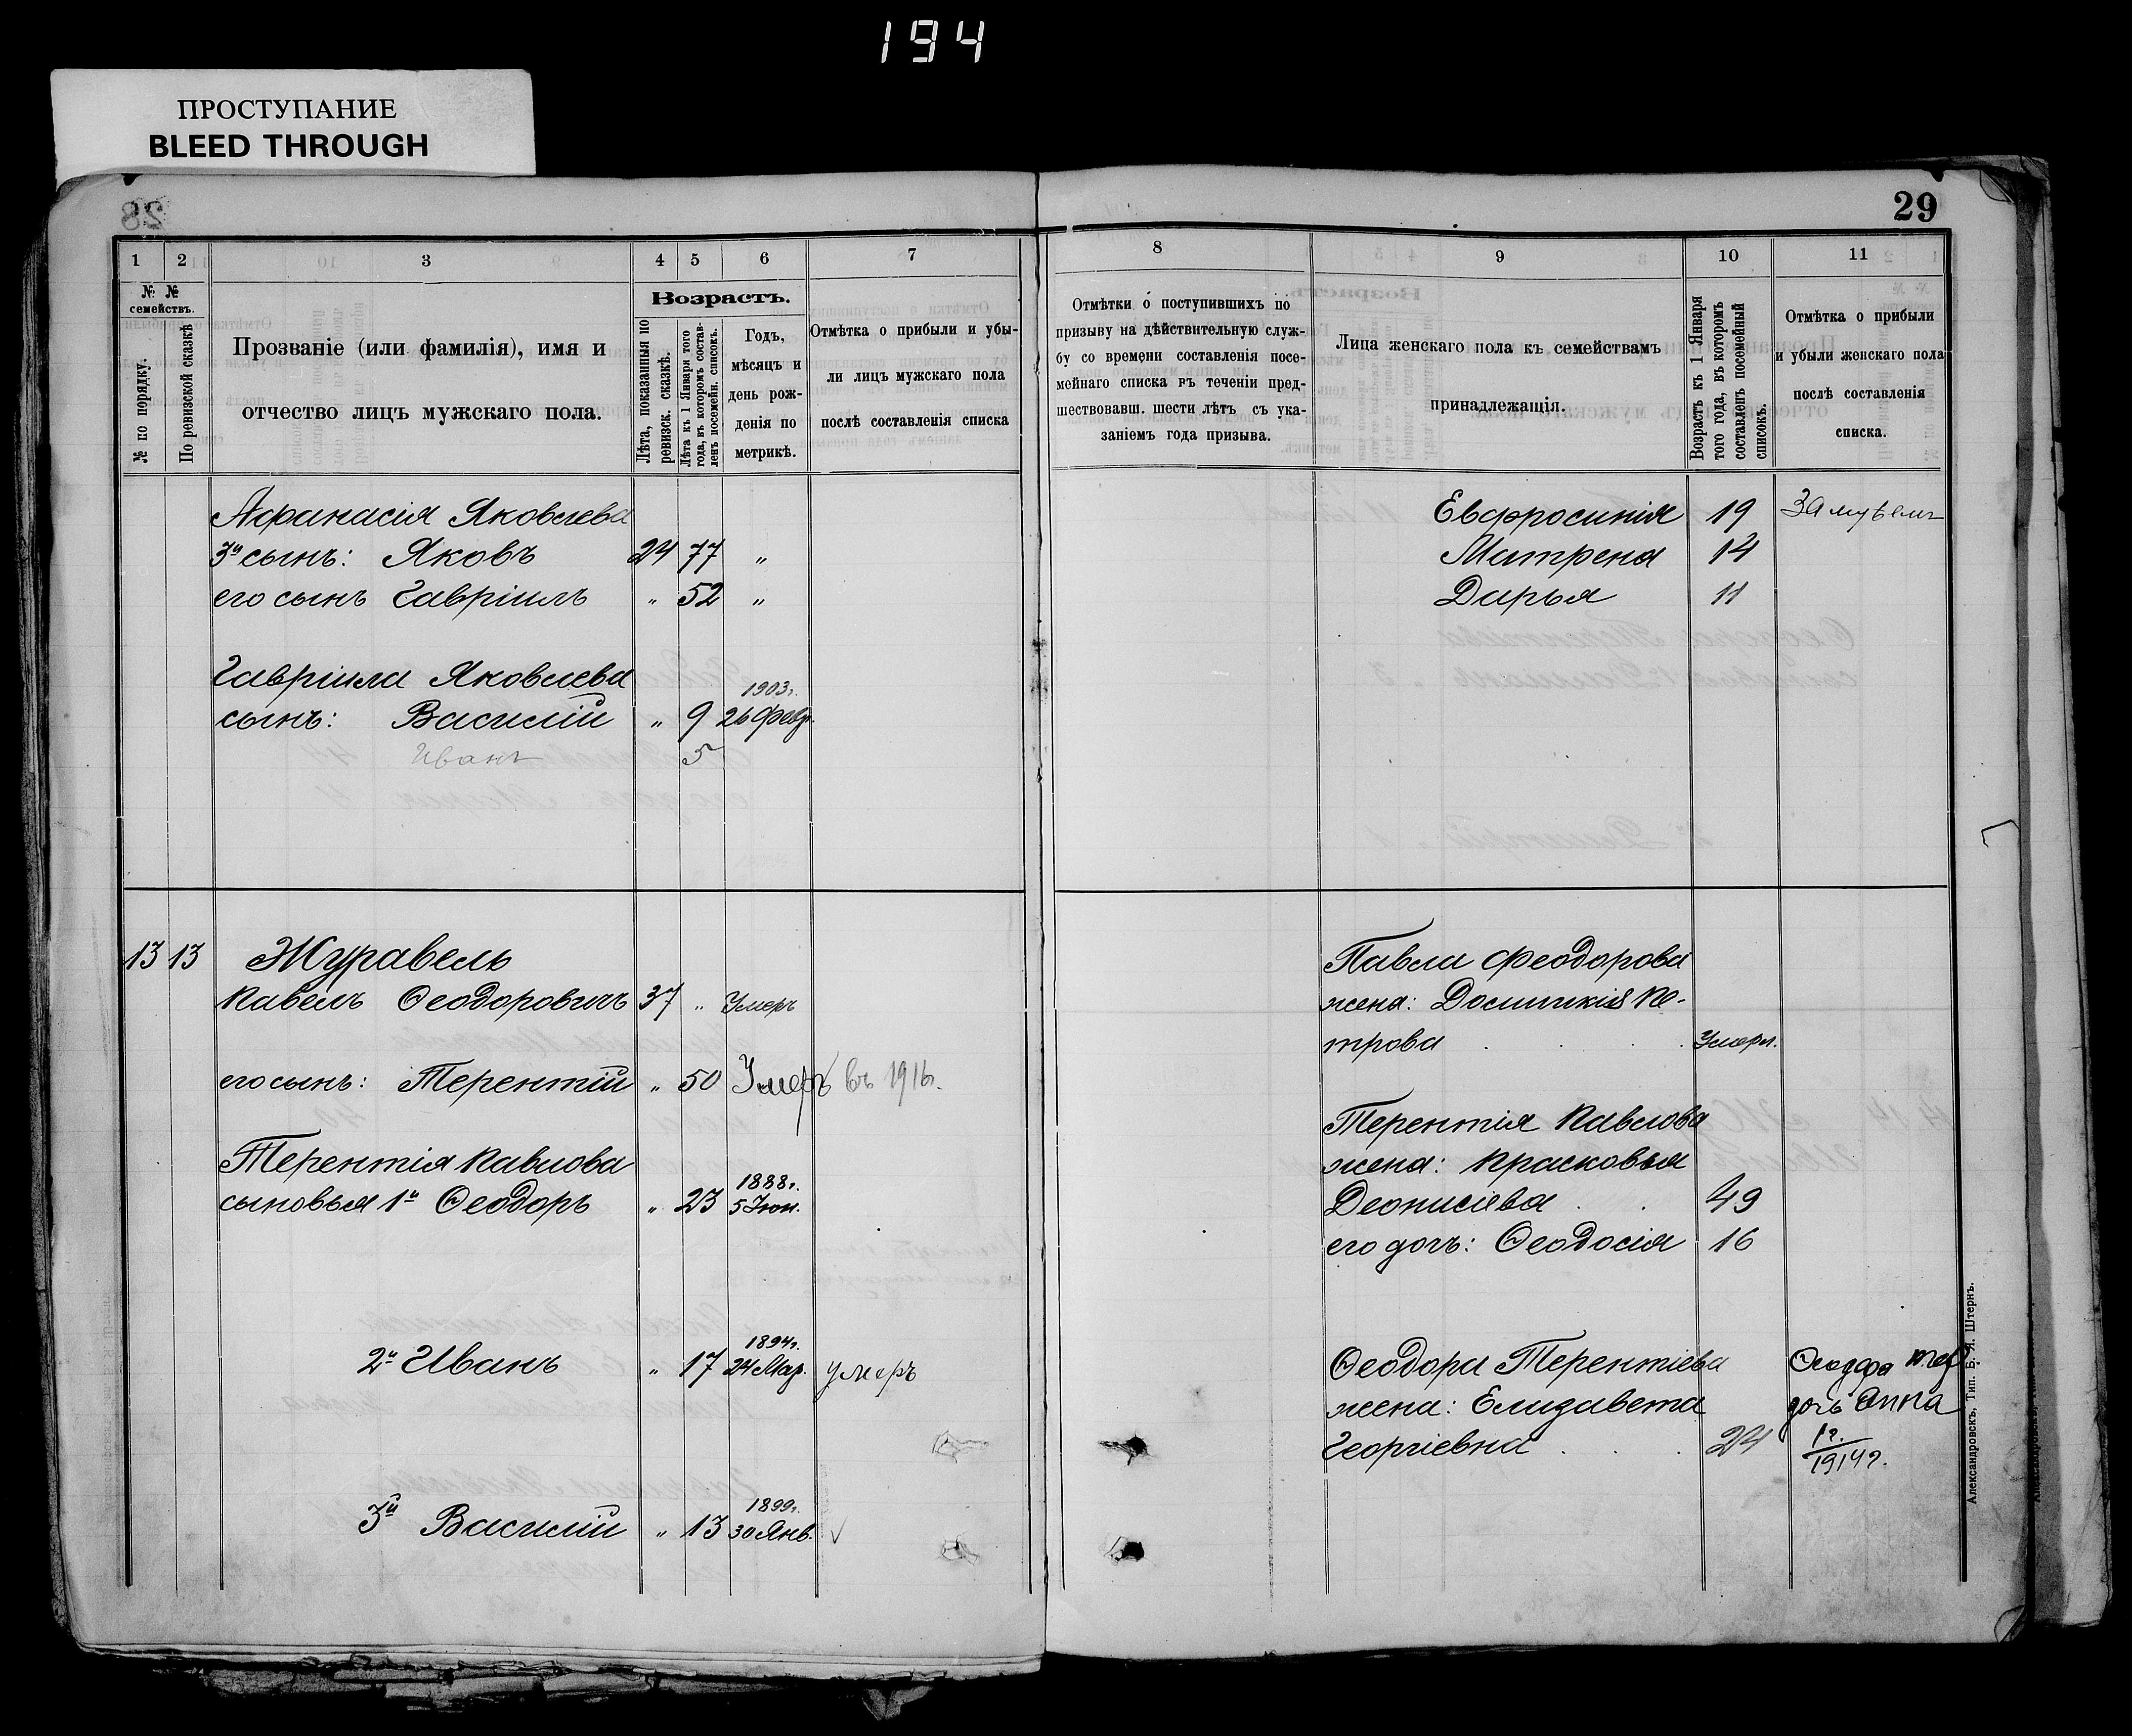 194
ПРОСТУПАНИЕ
BLEED THROUGH
28
29
1 2 3 4 5 6 7
№ № семействъ.
№ по порядку.
По ревизской сказкѣ
Прозваніе (или фамилія), имя и
отчество лицъ мужскаго пола.
Возрастъ.
Лѣта, показанныя по
ревизск. сказкѣ.
Лѣта къ 1 Января того
года, въ которомъ состав-
ленъ посемейн. списокъ.
Годъ,
мѣсяцъ и
день рож-
денія по
метрикѣ.
Отмѣтка о прибыли и убы-
ли лицъ мужскаго пола
послѣ составленія списка
8 9 10 11
Отмѣтки о поступившихъ по
призыву на дѣйствительную служ-
бу со времени составленія посе-
мейнаго списка въ теченіи пред-
шествовавш. шести лѣтъ съ ука-
заніемъ года призыва.
Лица женскаго пола къ семействамъ
принадлежащія.
Возрастъ къ 1 Января
того года, въ которомъ
составленъ посемейный
списокъ.
Отмѣтка о прибыли
и убыли женскаго пола
послѣ составленія
списка.
Афанасія Яковлева
3й сынъ: Яковъ 24 77 "
его сынъ Гавріилъ " 52 "
Гавріила Яковлева
1903г.
сынъ: Василій " 9 26 Февр.
Иванъ 5
13 13 Журавель
Павелъ Ѳеодоровичъ 37 " Умеръ
его сынъ: Терентій " 50 Умеръ въ 1916г.
Терентія Павлова
1888г.
сыновья 1й Ѳеодоръ " 23 5 Іюн.
1894г.
2й Иванъ " 17 24 Мар. умеръ
1899г.
3й Василій " 13 30 Янв. ✓
Евфросинія 19 Замужемъ
Матрена 14
Дарья 11
Павла Феодорова
жена: Домникія Пе-
трова Умерл.
Терентія Павлова
жена: Прасковья
Деонисіева 49
его дочь: Ѳеодосія 16
Ѳеодора Терентіева
жена: Елизавета
Георгіевна 24
Ѳеодора Тер
дочь Анна
1г.
1914г.
Александровскъ, Тип. Б. Я. Штернъ.